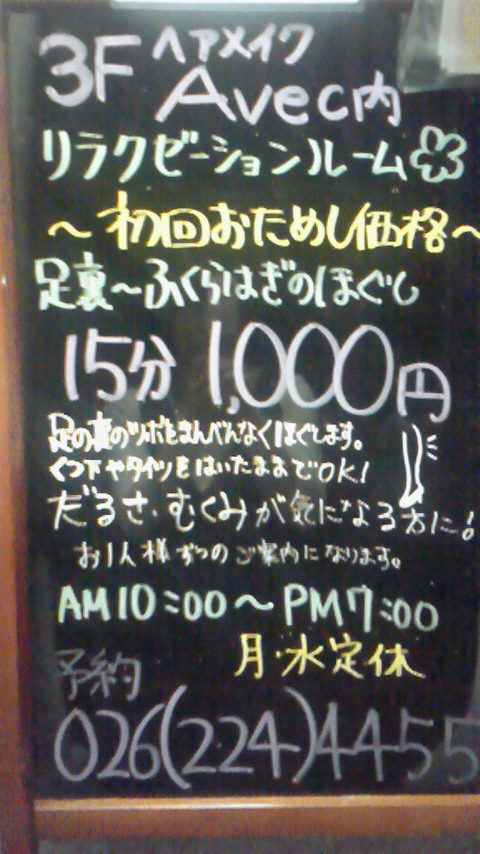 3F ヘアメイク
Avec内
リラクゼーションルーム
～初回おためし価格～
足裏～ふくらはぎのほぐし
15分 1,000円
足の裏のツボをまんべんなくほぐします。
くつ下やタイツをはいたままでOK!
だるさ・むくみが気になる方に!
お1人様ずつのご案内になります。
AM10:00～PM7:00
月・水定休
予約
026(224)4455